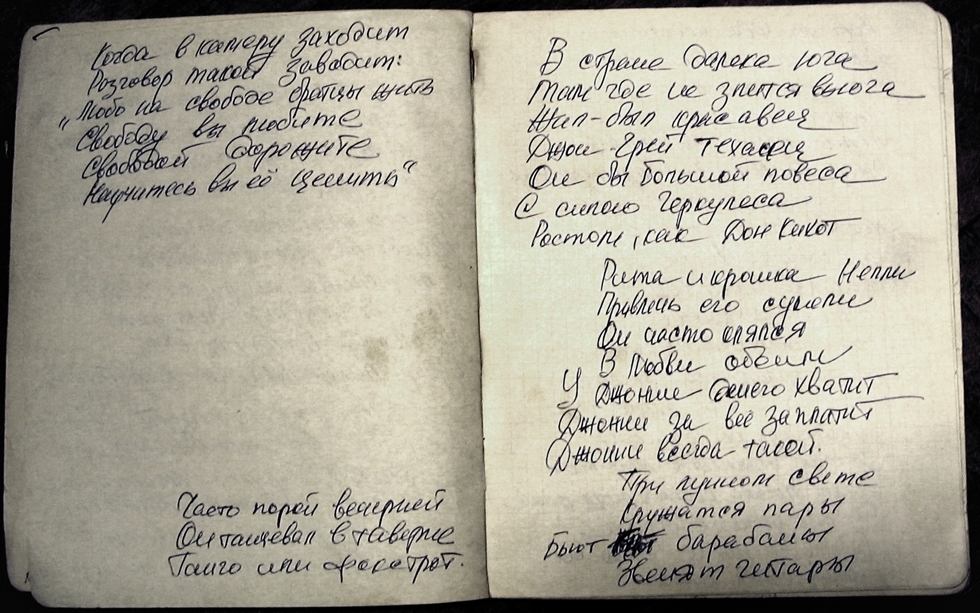 Когда в камеру заходит
Розговор такой заводит:
„Любо на свободе братцы жить
Свободу вы любите
Свободой дорожите
Научитесь вы её ценить“
Часто порой вечерней
Он танцевал в таверне
Танго или фокстрот.
В стране далека юга
Там где не злится вьюга
Жил-был красавец
Джон Грей техасец
Он бы большой повеса
С силою Геркулеса
Ростом, как Дон Кихот
Рита и крошка Нелли
Привлечь его сумели
Он часто клялся
В любви обеим
У Джонни денег хватит
Джонни за всё заплатит
Джонни всегда такой.
При лунном свете
Кружатся пары
Бьют барабаны
Звенят гитары